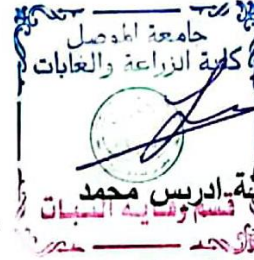 جامعة الموصل
كلية الزراعة والغابات
ادريس محمد
قسم وقاية النبات